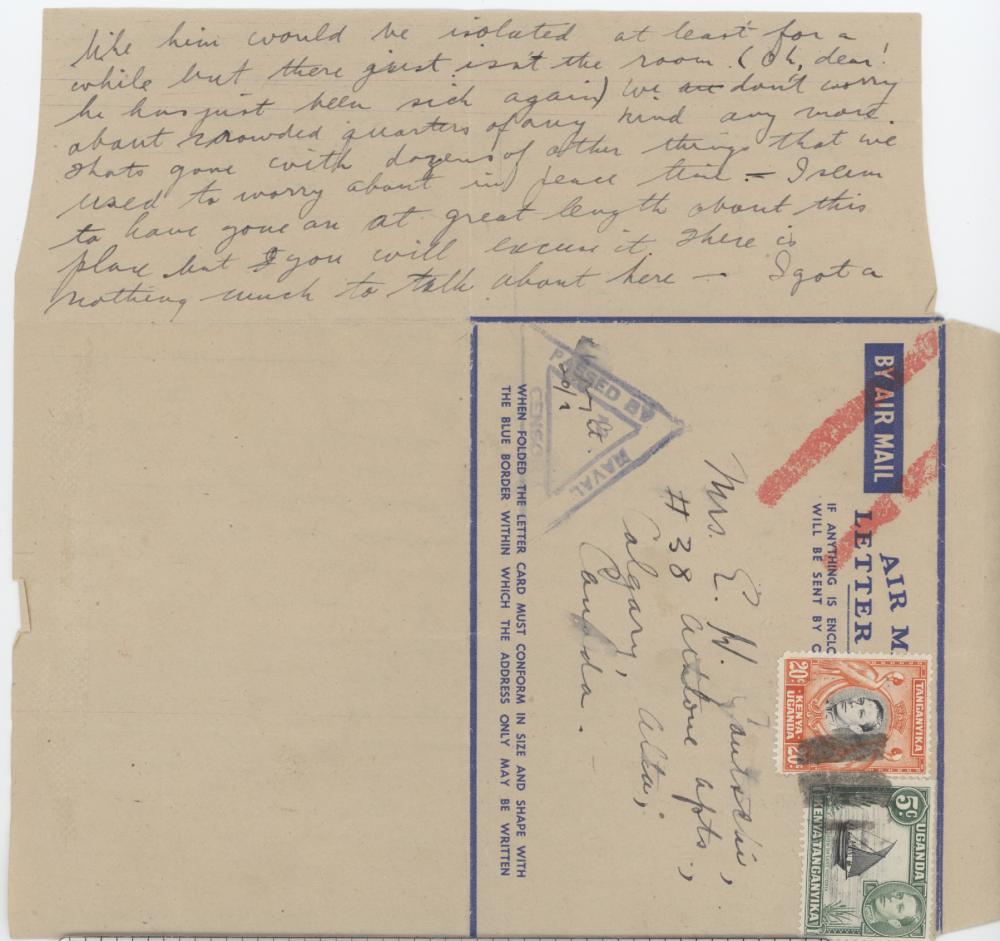 like him would be isolated at least for a
while but there just isn't the room. (Oh, dear!
he has just been sick again) We don't worry
about crowded quarters of any kind any more.
Thats gone with dozens of other things that we
used to worry about in peace time. – I seem
to have gone on at great length about this
place but you will excuse it. There is
nothing much to talk about here – I got a
BY AIR MAIL
AIR M
LETTER
IF ANYTHING IS ENCLO
WILL BE SENT BY
Mrs. E. W.
# 38 apts.,
Calgary, Alta,
Canada.
PASSED BY
NAVAL
CENSOR
WHEN FOLDED THE LETTER CARD MUST CONFORM IN SIZE AND SHAPE WITH
THE BLUE BORDER WITHIN WHICH THE ADDRESS ONLY MAY BE WRITTEN
TANGANYIKA
20c KENYA 20c
UGANDA
5c UGANDA
KENYA TANGANYIKA